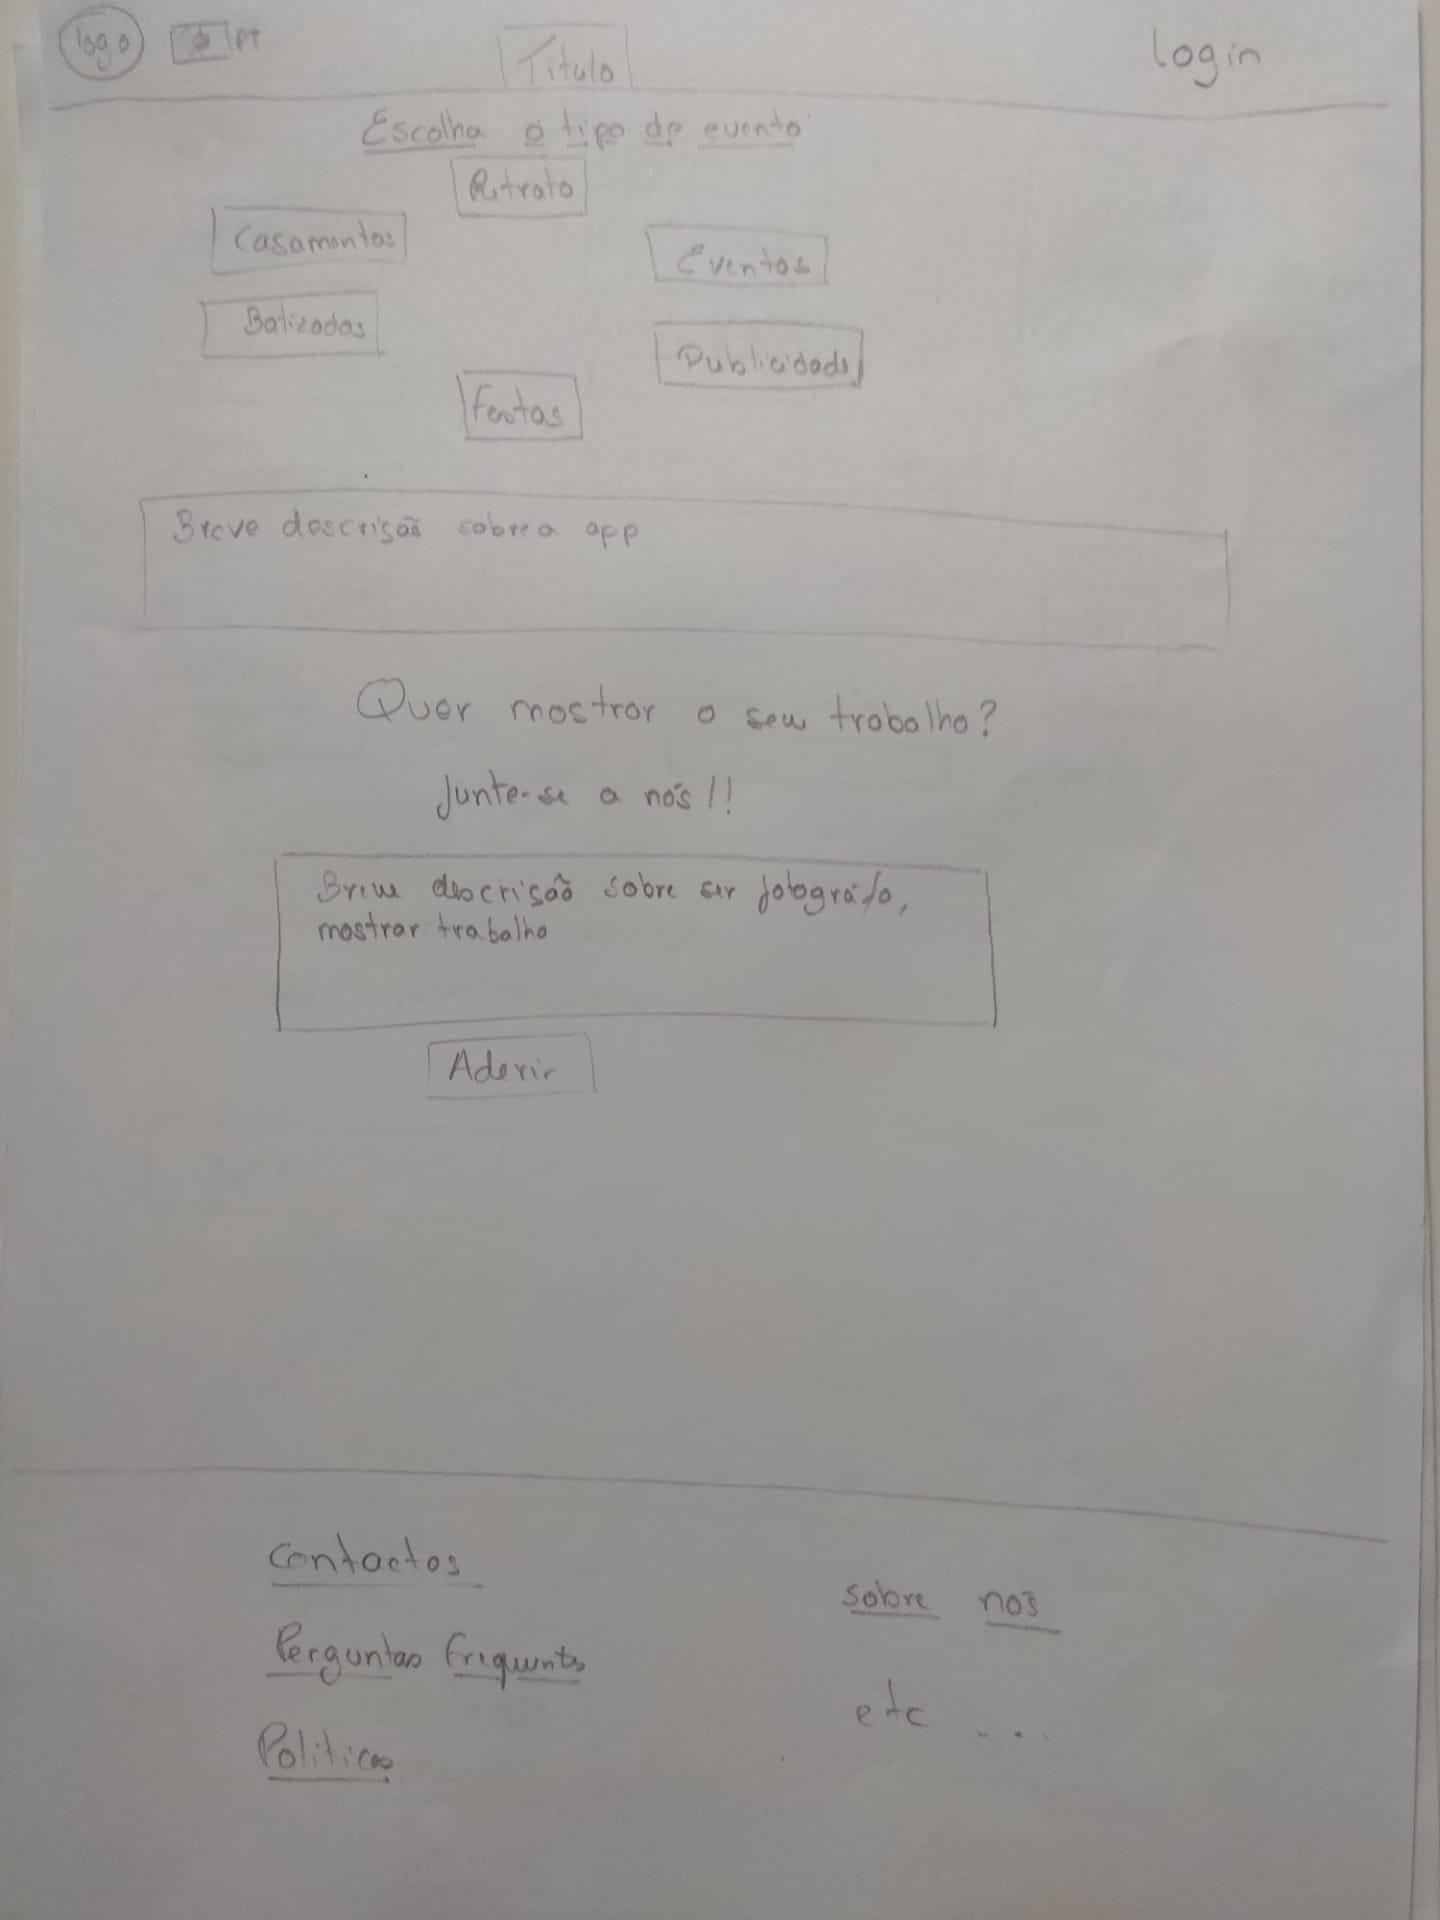 logo PT Titulo login
Escolha o tipo de evento
Retrato
Casamentos
Eventos
Batizados
Publicidade
Festas
Breve descrisão sobre a app
Quer mostrar o seu trabalho?
Junte-se a nós!!
Breve descrisão sobre ser fotografo,
mostrar trabalho
Aderir
Contactos
sobre nós
Perguntas frequentes
etc ...
Politicas